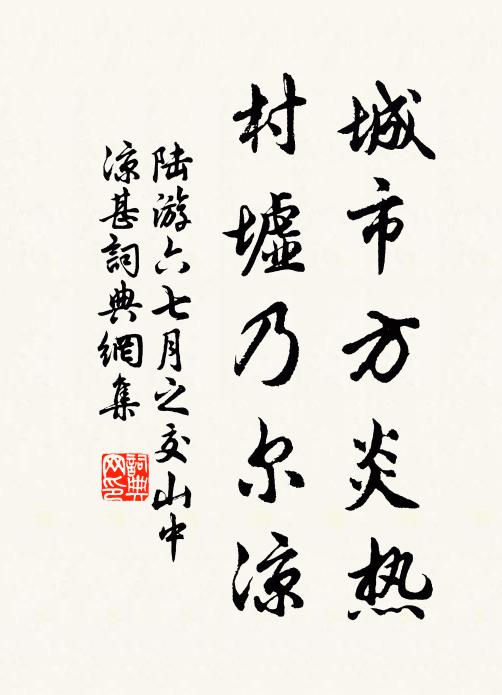 城市方炎热
村墟乃尔凉
陆游六七月之交山中
凉甚詞典網集
詞典
网印